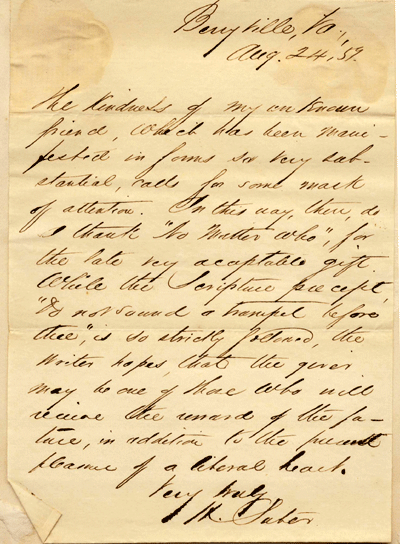 Berryville, Va.,
Aug. 24, 59.
The kindness of my unknown
friend, which has been mani-
fested in forms so very sub-
stantial, calls for some mark
of attention. In this way, then, do
I thank "No Matter Who", for
the late very acceptable gift.
While the Scripture precept,
"Do not sound a trumpet before
thee", is so strictly followed, the
writer hopes, that the giver
may be one of those who will
receive the reward of the fu-
ture, in addition to the present
pleasure of a liberal heart.
Very truly
H. Suter